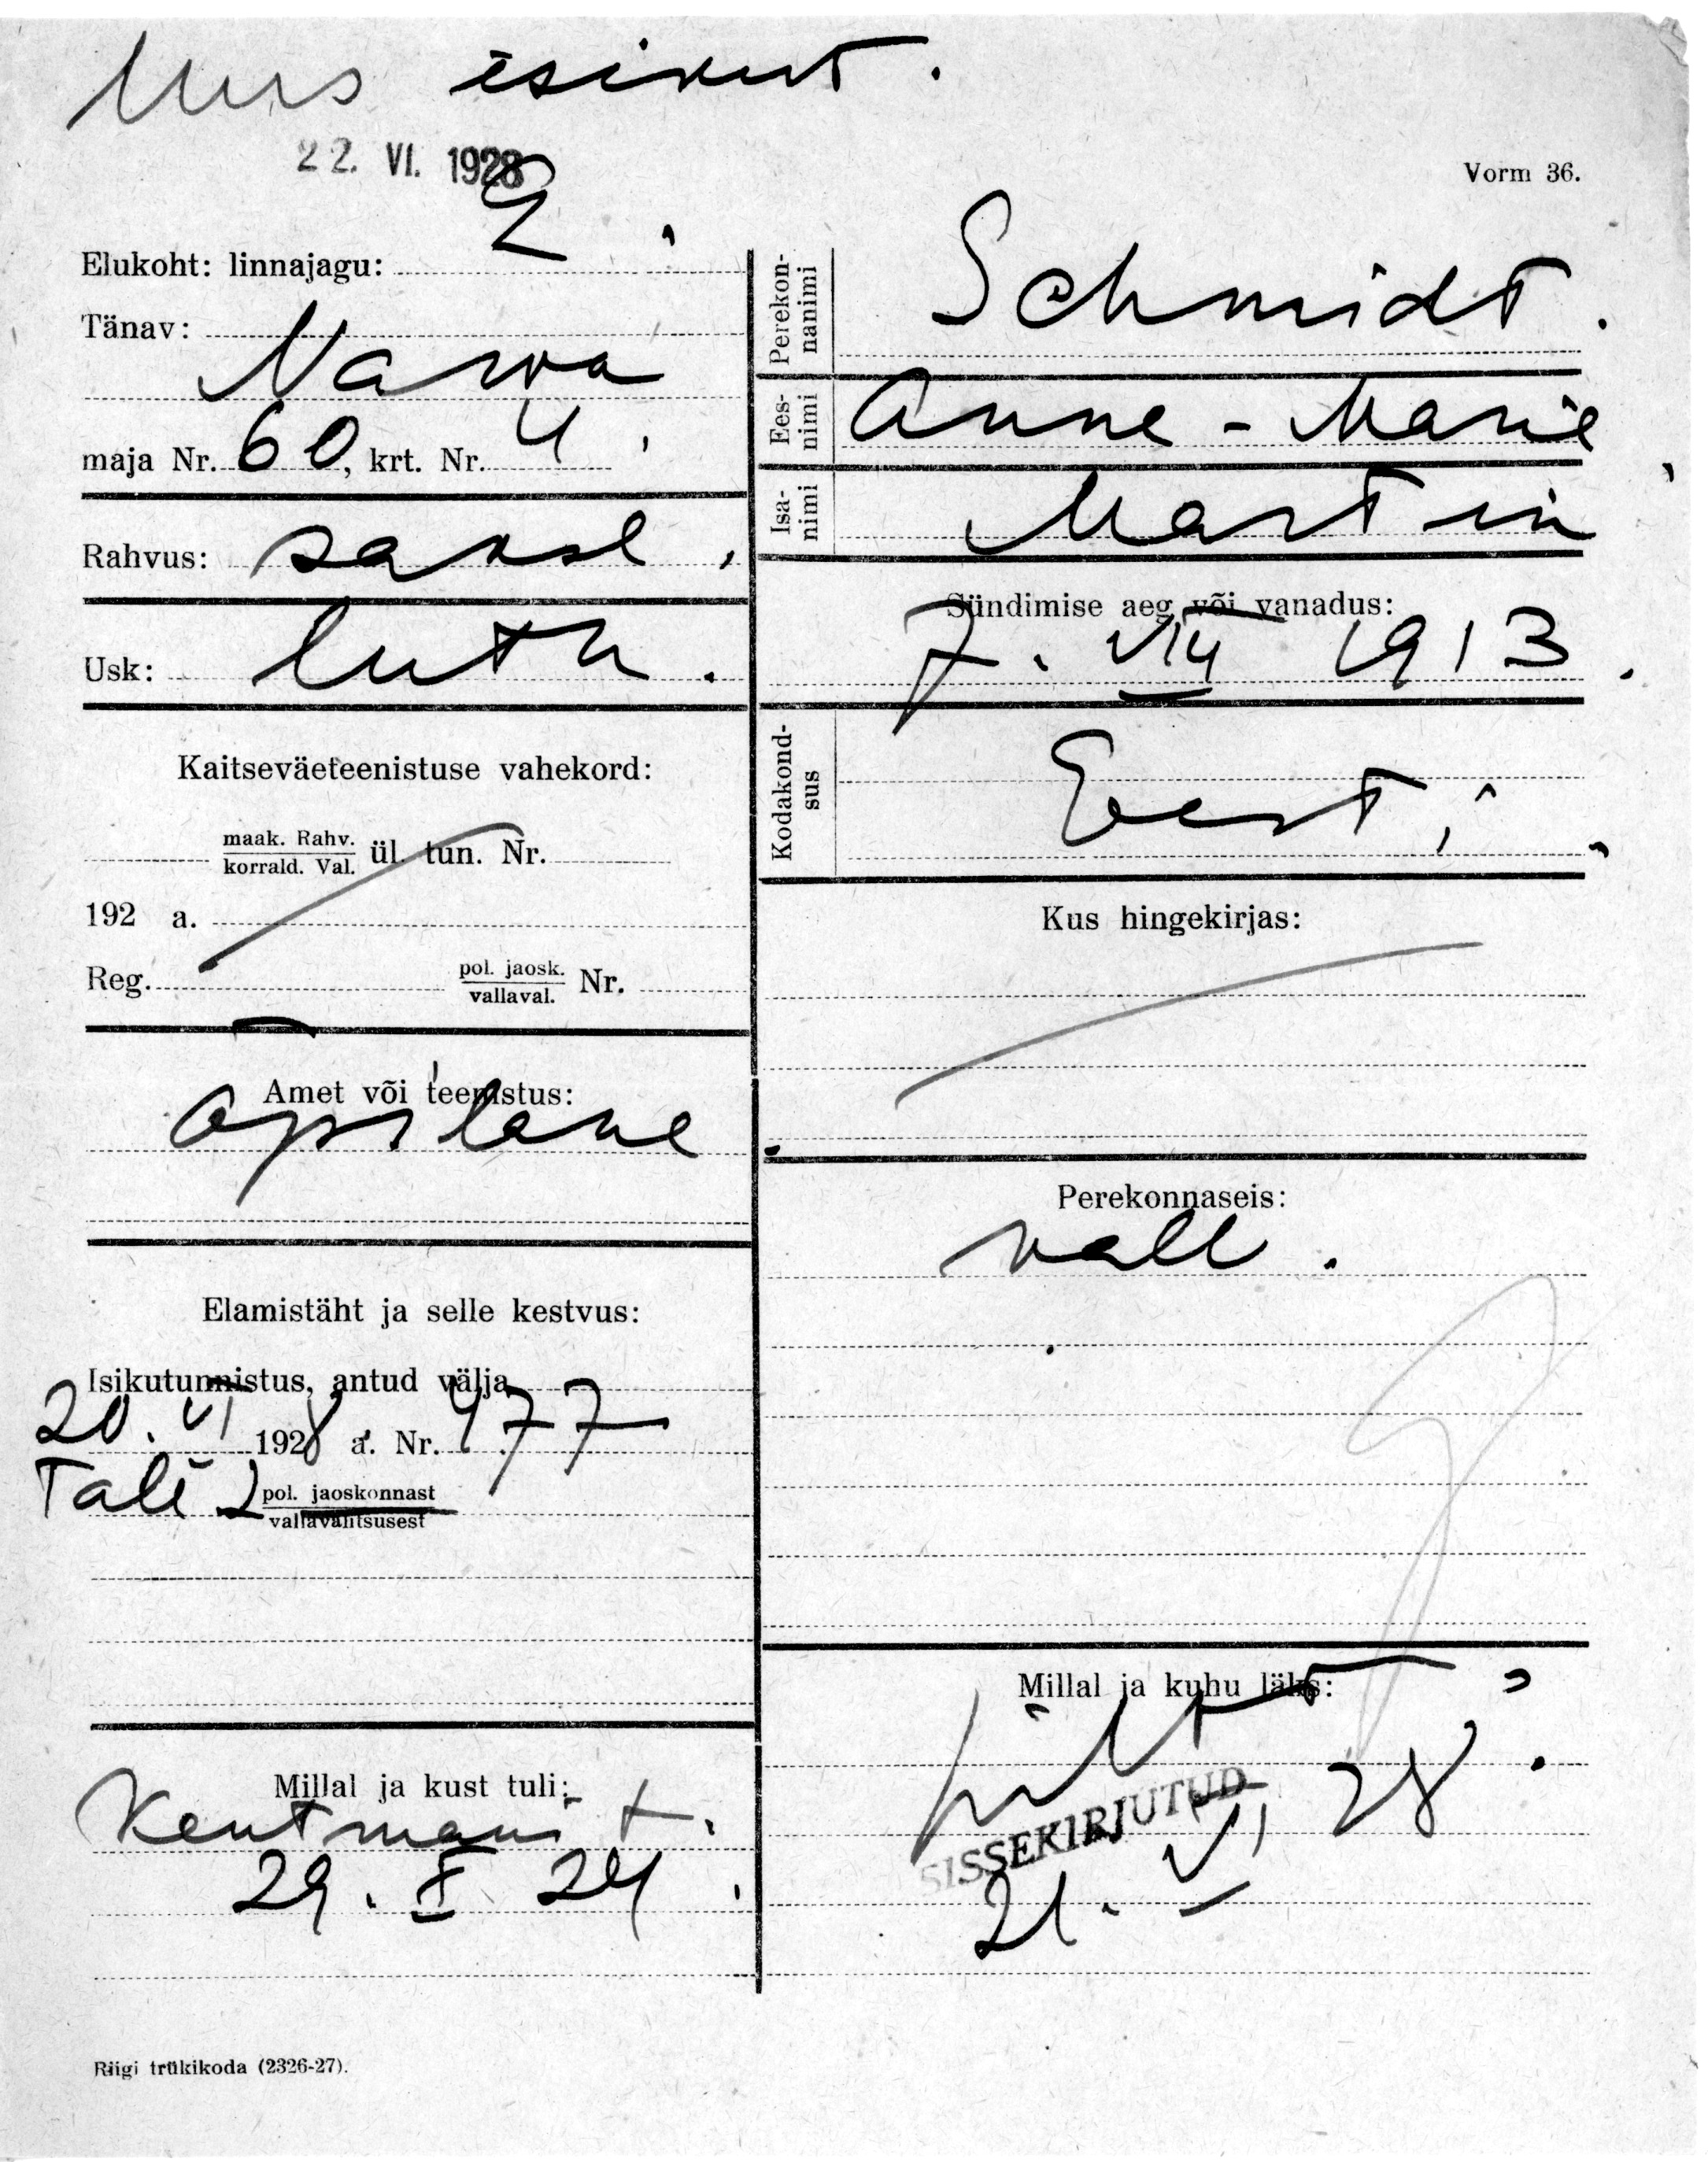 Uus isikut.
22. VI. 1928
Vorm 36.
Elukoht: linnajagu: 2.
Tänav:
Narva
maja Nr. 60, krt. Nr. 4.
Rahvus: saksl.
Usk: luth.
Kaitseväeteenistuse vahekord:
maak. Rahv.
korrald. Val. ül. tun. Nr.
192 a.
Reg. pol. jaosk.
vallaval. Nr.
Amet või teenistus:
õpilane.
Elamistäht ja selle kestvus:
Isikutunnistus, antud välja
20. VI 1928 a. Nr. 477
Tall 2 pol. jaoskonnast
vallavalitsusest
Millal ja kust tuli:
Kentmani t.
29. X 24.
Riigi trükikoda (2326-27).
Perekon-
nanimi
Schmidt.
Ees-
nimi
Anne-Marie
Isa-
nimi
Martin
Sündimise aeg või vanadus:
7. VII 1913.
Kodakond-
sus
Eesti.
Kus hingekirjas:
Perekonnaseis:
vall.
Millal ja kuhu läks:
SISSEKIRJUTUD
21. VI 28.